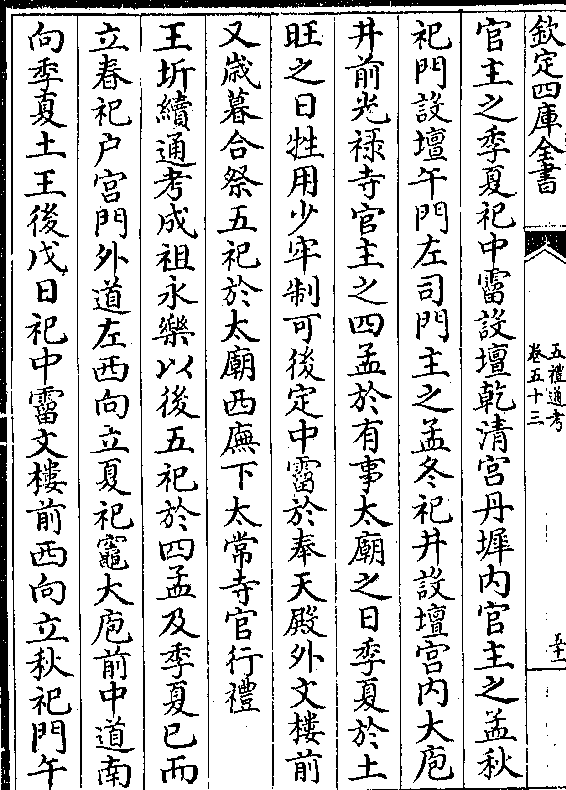 欽定四庫全書
五禮通考
卷五十三
官主之季夏祀中霤設壇乾清宮丹墀内官主之孟秋
祀門設壇午門左司門主之孟冬祀井設壇宮内大庖
井前光祿寺官主之四孟於有事太廟之日季夏於土
旺之日牲用少牢制可後定中霤於奉天殿外文樓前
又歲暮合祭五祀於太廟西廡下太常寺官行禮
王圻續通考成祖永樂以後五祀於四孟及季夏已而
立春祀户宮門外道左西向立夏祀竈大庖前中道南
向季夏土王後戊日祀中霤文樓前西向立秋祀門午